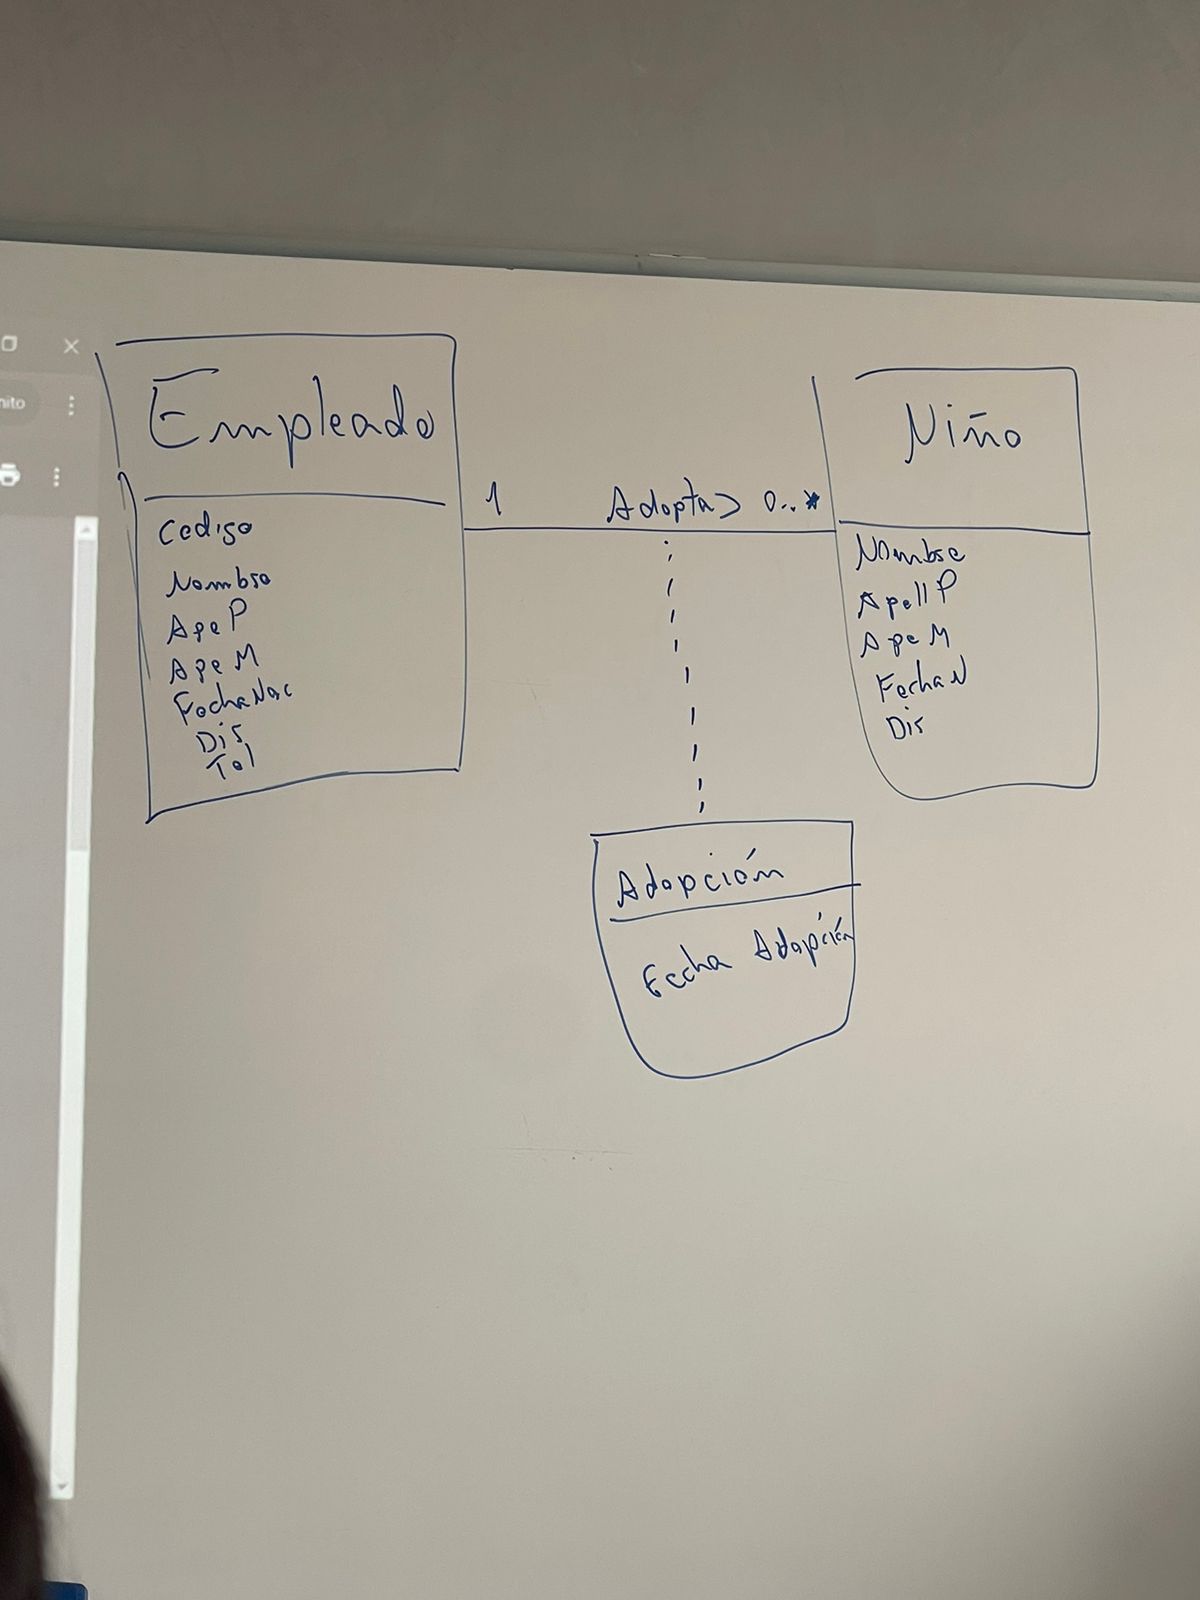 nito
Empleado
Codigo
Nombre
ApeP
ApeM
FechaNac
Dir
Tel
1 Adopta> 0..*
Niño
Nombre
ApellP
ApeM
FechaN
Dir
Adopción
Fecha Adopción